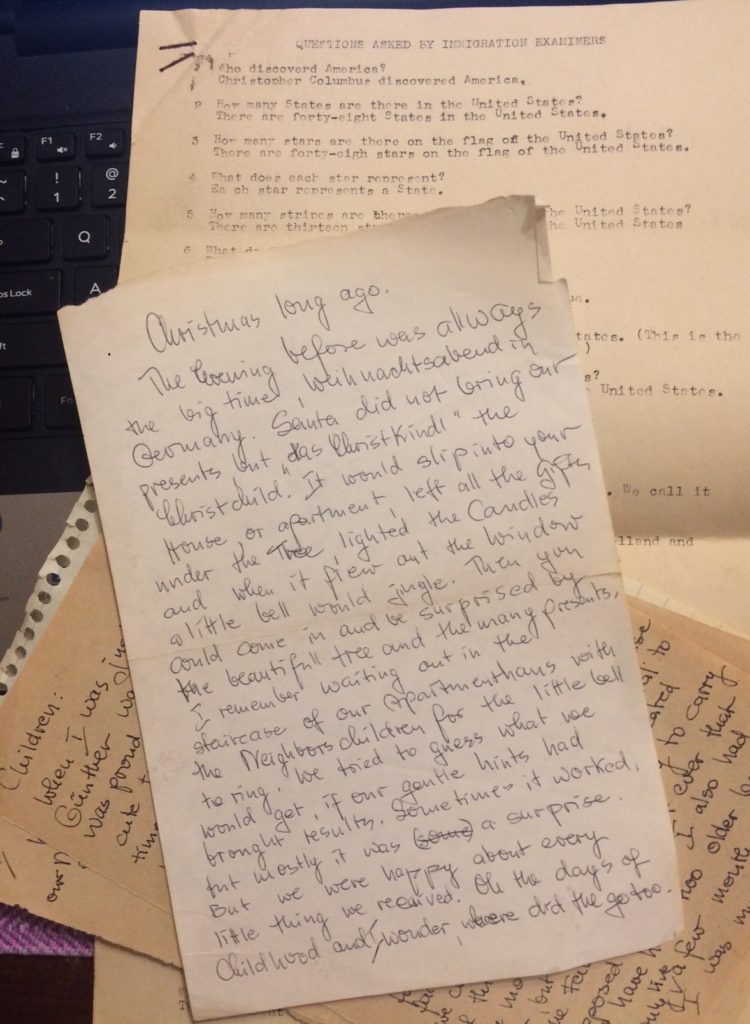 QUESTIONS ASKED BY IMMIGRATION EXAMINERS
Who discoverd America?
Christopher Columbus discovered America.
2 How many States are there in the United States?
There are forty-eight States in the United States.
3 How many stars are there on the flag of the United States?
There are forty-eigh stars on the flag of the United States.
4 What does each star represent?
Ea ch star represents a State.
5 How many stripes are there the United States?
There are thirteen the United States
6 What
tates. (This is the
s?
United States.
. We call it
lland and
Christmas long ago.
The Evening before was allways
the big time, Weihnachtsabend in
Germany. Santa did not bring our
presents but "das Christkindl" the
Christchild. It would slip into your
House or apartment, left all the gifts
under the Tree, lighted the Candles
and when it flew out the window
a little bell would jingle. Then you
could come in and be surprised by
the beautifull tree and the many presents.
I remember waiting out in the
staircase of our Apartmenthaus with
the Neighbors children for the little bell
to ring. We tried to guess what we
would get, if our gentle hints had
brought results. Sometimes it worked,
but mostly it was (some) a surprise.
But we were happy about every
little thing we received. Oh the days of
Childhood and wonder, where did the go too.
Children:
when I was
Günther
was proud
cute
time
to carry
ever that
I also had
older
a few
I was
F1
F2
!
1
@
2
Q
A
ps Lock
ft
Fn